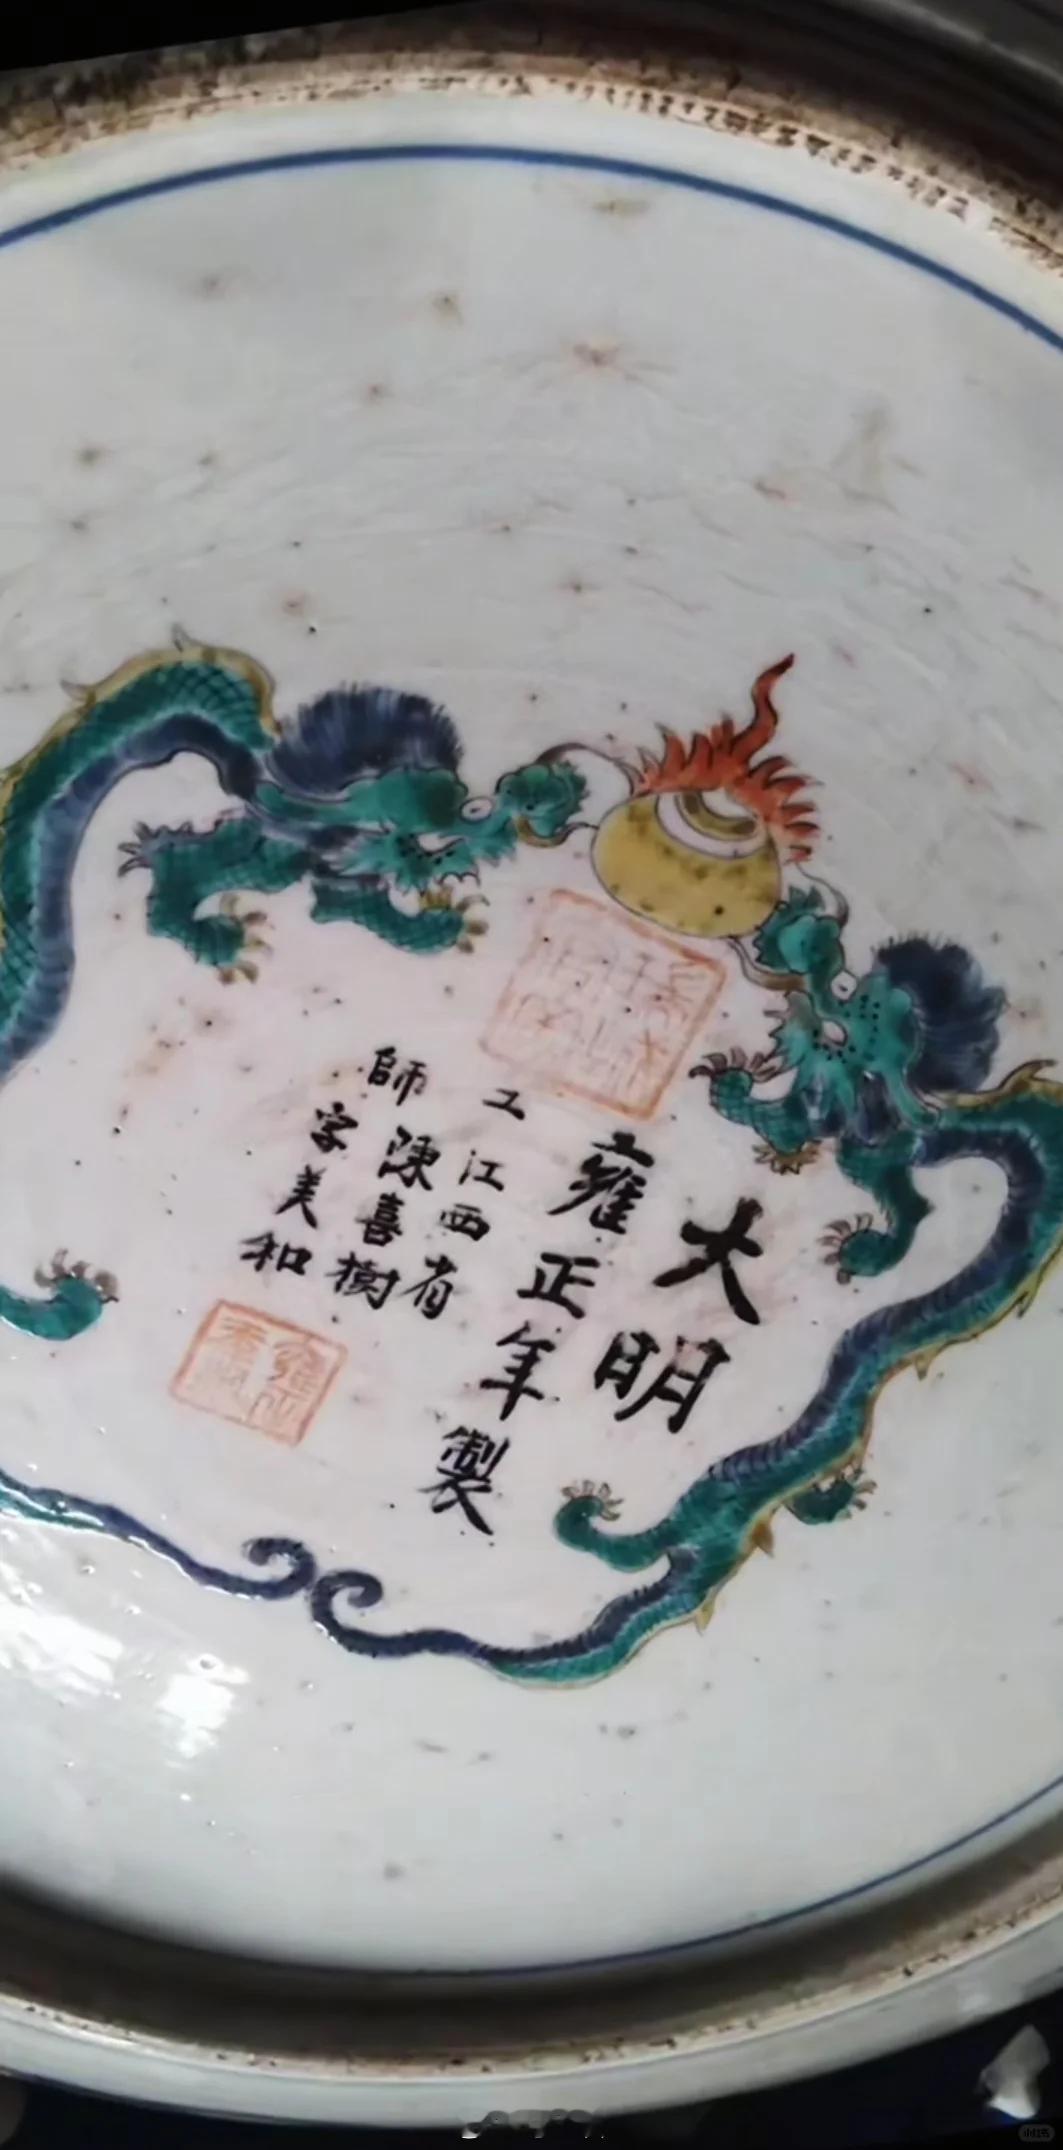 大明
雍正年製
工江西省
師陳喜樹
字美和
小红书